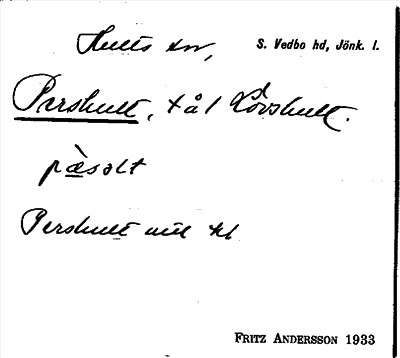 Hults sn, S. Vedbo hd, Jönk. l.
Pershult, t å l Lövshult.
pæ̀salt
Pershult mtl kl
FRITZ ANDERSSON 1933